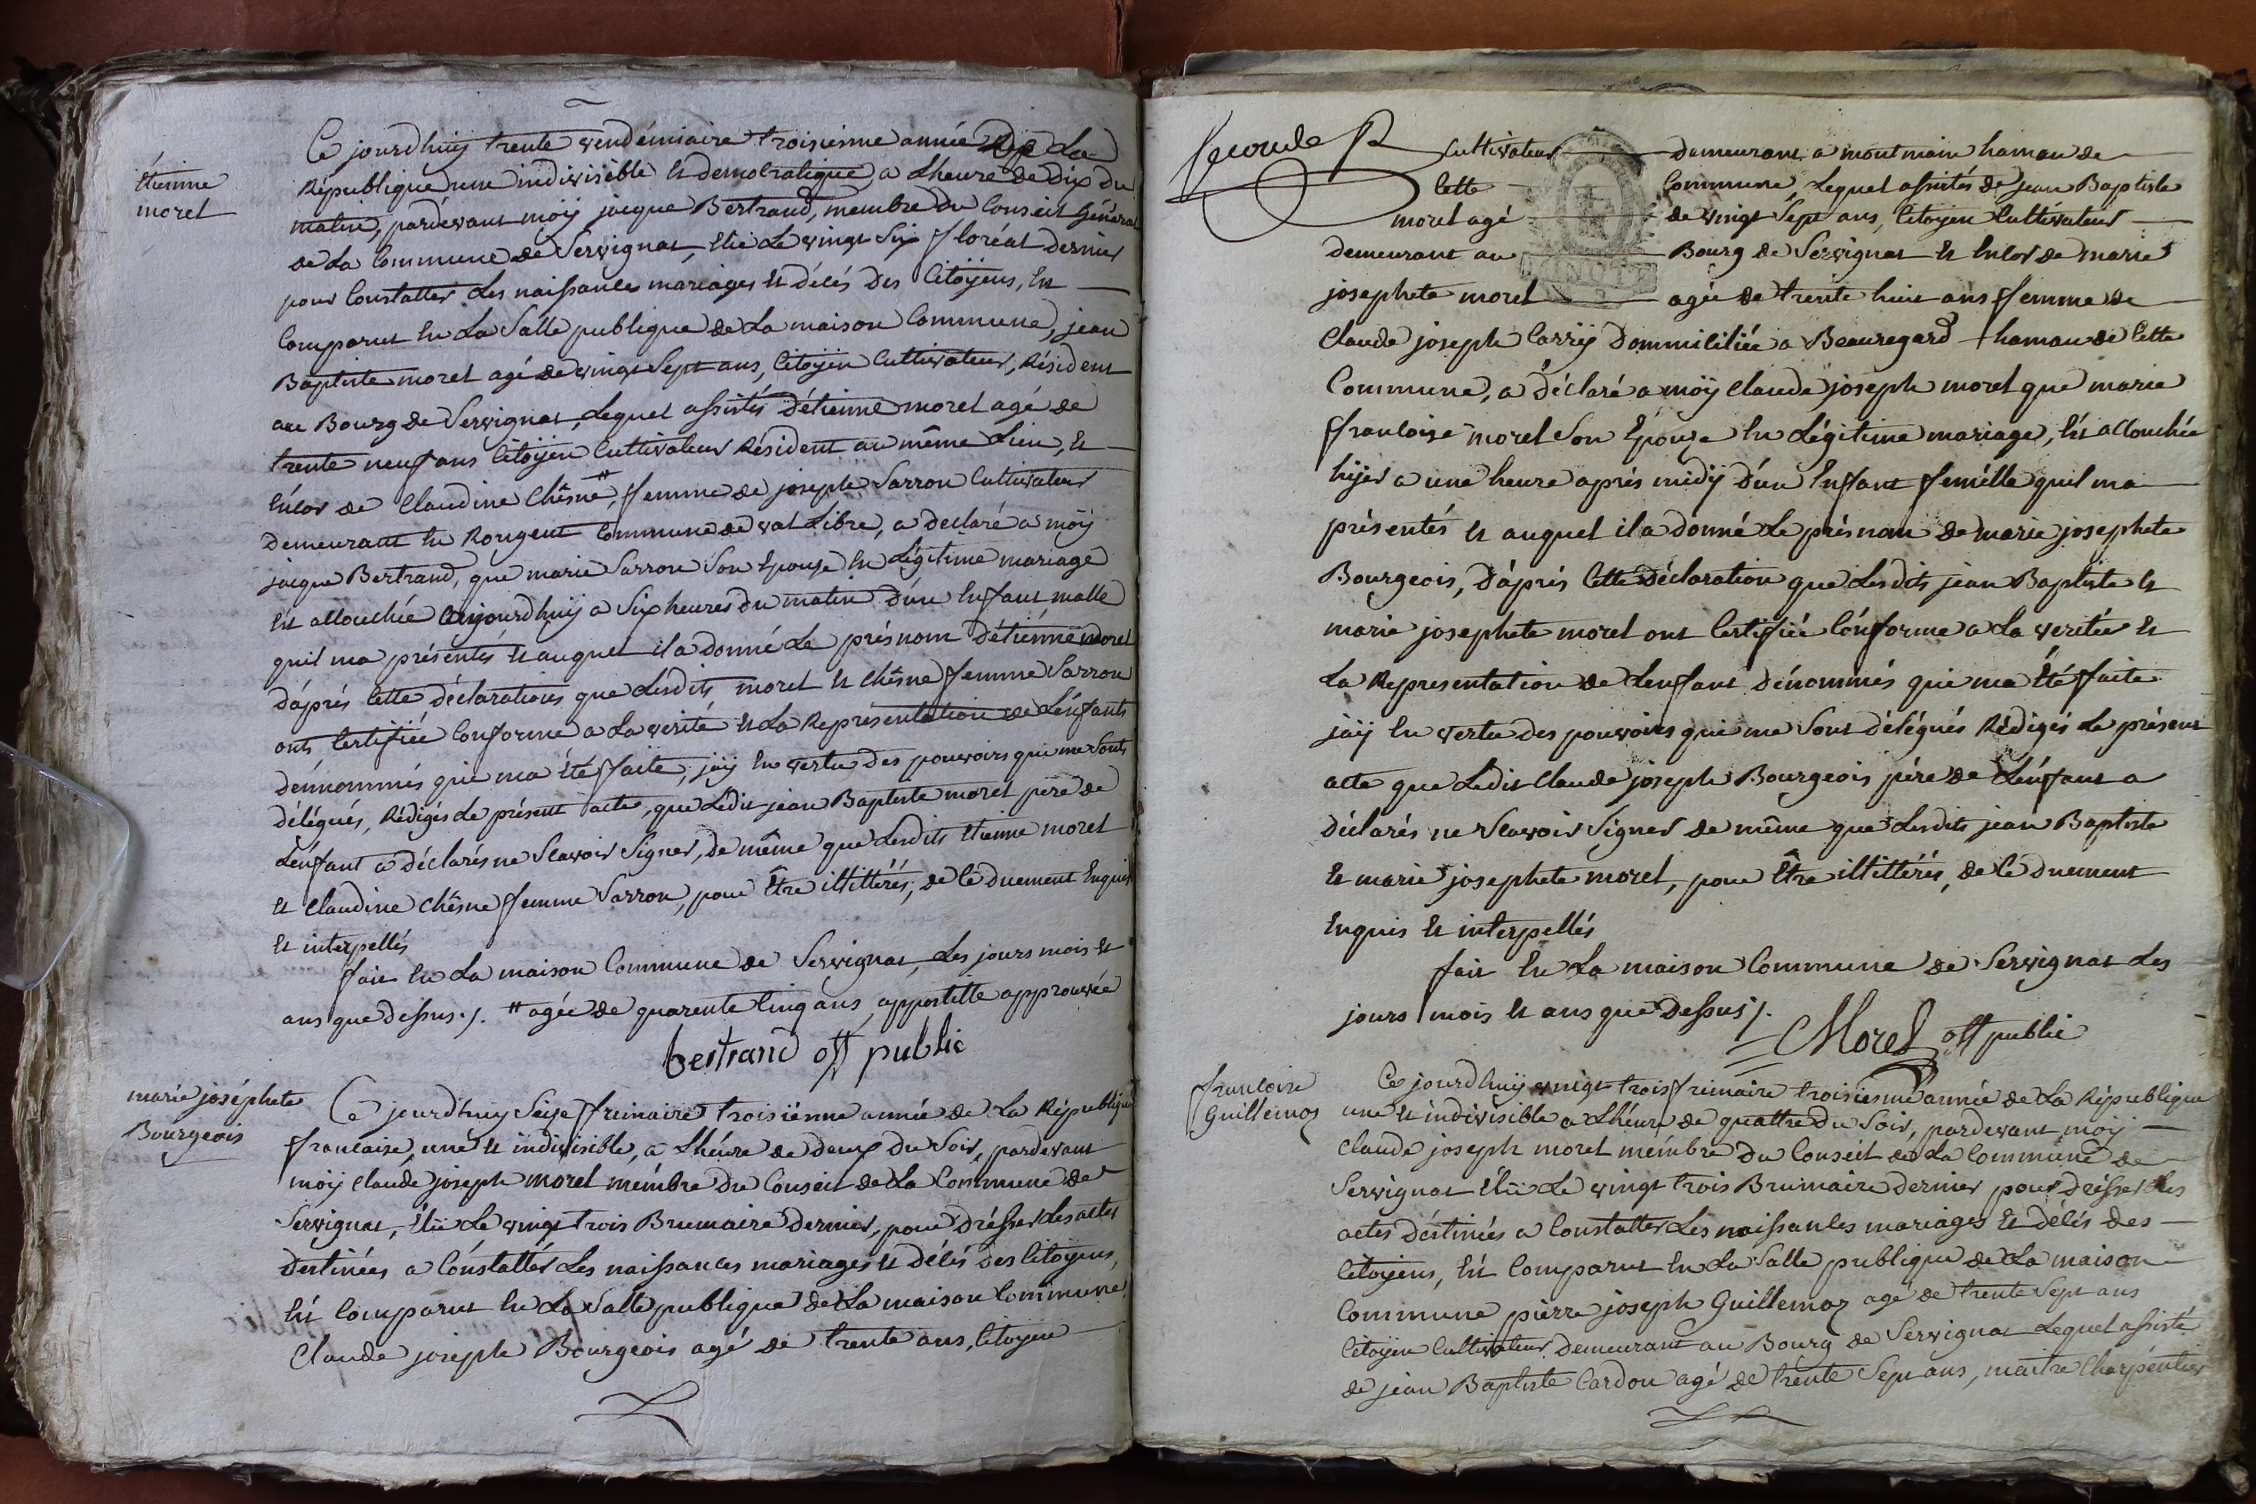 étienne
morel
Ce jourdhuij trente vendémiaire troisieme année De La
République une indivisible et democratique, a Lheure de Dix du
matin, pardevant moÿ jacque Bertrand, membre du Conseil Général
de La Commune de Servignat, élü Le vingt Six floréal dernier
pour Constatter Les naissances mariages et décés Des Citoÿens, Est
Comparut En La Salle publique de La maison Commune, jean
Baptiste morel agé de vingt Sept ans, Citoÿen Cultivateur, Résident
au Bourg de Servignat, Lequel assistés d'étienne morel agé de
trente neuf ans Citoÿen Cultivateur Résident au même Lieu, et
Encor de Claudine Chêsne #, femme de joseph Sarron Cultivateur
Demeurant En Rongent Commune de val Libre, a declaré a moÿ
jacque Bertrand, que marie Sarron Son Epouse En Légitime mariage
Est accouchée aujourdhuij a Six heures du matin d'ún Enfant malle
quil ma présentés et auquel il a donné Le présnom d'étienne morel
D'aprés Cette déclarations que Lesdits morel et Chêsne femme Sarron
ont Certifiée Conforme a La verité et La Représentation de L'énfants
dénnommés qui ma été faite, jaÿ En vertu des pouvoirs qui me Sonts
délégués, Rédigés Le présent acte, que Lédit jean Baptiste morel pere de
L'énfant a déclarés ne Scavoir Signer, de même que Lesdits étienne morel
et Claudine Chêsne femme Sarron, pour être illittérés, de Cè duement Enquis
et interpellés
fait En La maison Commune de Servignat, Les jours mois et
ans que dessus ./. # agée de quarente Cinq ans appostille approuvée
bertrand off public
marie joséphete
Bourgeois
Ce jourd'huy Seize frimaire troisiénne année de La République
francaise, une et indivisible, a Lhéure de deux du Soir, pardevant
moÿ Claude joseph morel mémbre du Conseil de La Commune de
Servignat, élü Le vingt trois Brumaire dernier, pour drésser Les actes
destinées a Cónstattér Les naissances mariages et décés des Citoÿens,
Est Comparut En La Salle publique de La maison Commune
Claude joseph Bourgeois agé de trente ans, Citoÿen
Seconde R
Cultivateur demeurant a montmain hamau de
Cette Commune, Lequel assistés de jean Baptiste
morel agé de vingt Sept ans, Citoyen Cultivateur
demeurant au Bourg de Servignat et Encor de marie
josephete morel agée de trente huit ans femme de
Claude joseph Carrÿ Dommiciliée a Beauregard hamau de Cette
Commune, a déclaré a moÿ Claude joseph morel que marie
francoise morel Son Epouze En Légitime mariage, Est accouchée
hijer a une heure aprés midÿ d'ún Enfant femélle quil ma
présentés et auquel il a donné Le présnom de marie josephete
Bourgeois, d'áprés Cette déclaration que Lesdits jean Baptiste et
marie josephete morel ont Certifiée Cónforme a La veritée et
La Representation de Lenfant dénommés qui ma été faite
jaÿ En vertu des pouvoirs qui me Sont délégués Rédigés Le présent
acte que Ledit Claude joseph Bourgeois pére de L'énfant a
déclarés ne Scavoir Signer de même que Lesdits jean Baptiste
et marie josephete morel, pour être illittérés, de Cè duement
Enquis et interpellés
fait En La maison Commune de Servignat Les
jours mois et ans que Dessus ./.
Morel off public
francoise
Guillemoz
Ce jourdhuÿ vingt trois frimaire troisienne année de La République
une et indivisible a Lhéure de quattre du Soir, pardevant moÿ
Claude joseph morel mémbre du Conseil de La Commune de
Servignat élü Le vingt trois Brumaire dernier pour drésser Les
actes déstinées a Constatter Les naissances mariages et décés des
Citoÿens, Est Comparut En La Salle publique de La maison
Commune pierre joseph Guillemoz agé de trente Sept ans
Citoÿen Cultivateur demeurant au Bourg de Servignat Lequel assisté
de jean Baptiste Cardon agé de trente Sept ans, maitre Charpentier